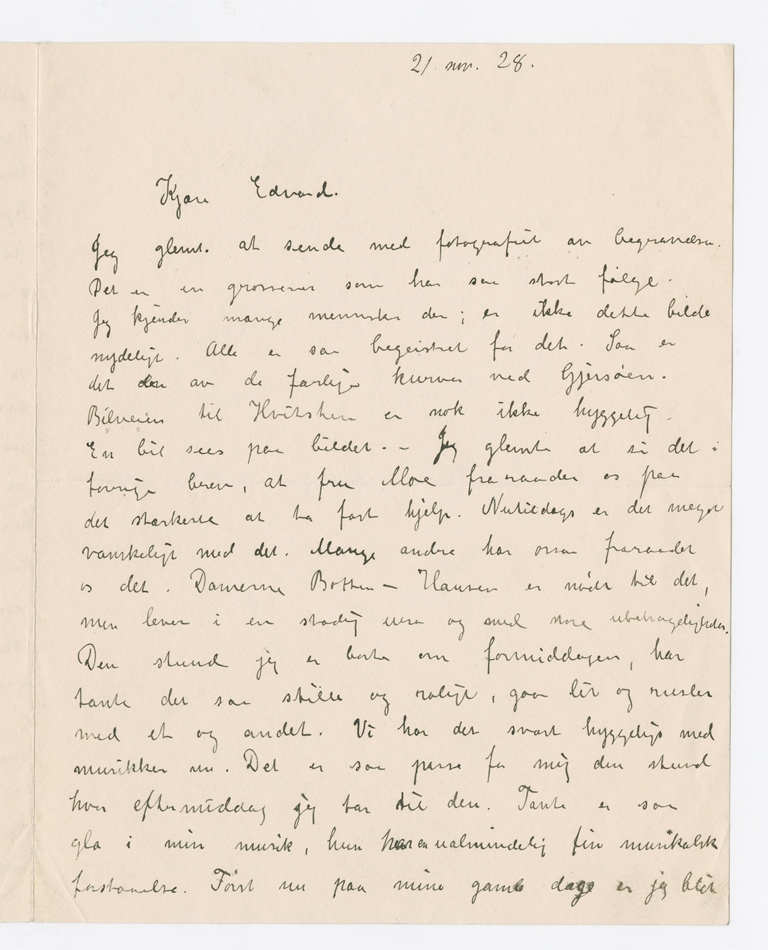 21. nov. 28.
Kjære Edvard.
Jeg glemte at sende med fotografiet av begravelsen.
Det er en grosserer som har saa stort følge.
Jeg kjender mange mennesker der; er ikke dette bilde
nydeligt. Alle er saa begeistret for det. Saa er
det den av de farlige kurver ved Gjersøen.
Bilveien til Hvitsten er nok ikke hyggelig.
En bil sees paa bildet. – Jeg glemte at si det i
forrige brev, at fru Moe fraraader os paa
det sterkeste at ta fast hjelp. Nutildags er det meget
vanskeligt med det. Mange andre har ogsaa fraraadet
os det. Damerne Botten-Hansen er nødt til det,
men lever i en stadig uro og med store ubehageligheder.
Den stund jeg er borte om formiddagen, har
tante det saa stille og roligt, gaar lit og rusler
med et og andet. Vi har det svært hyggeligt med
musikken nu. Det er saa passe for mig den stund
hver eftermiddag jeg tar til den. Tante er saa
gla i min musik, hun har en ualmindelig fin musikalsk
forstaaelse. Først nu paa mine gamle dage er jeg blit